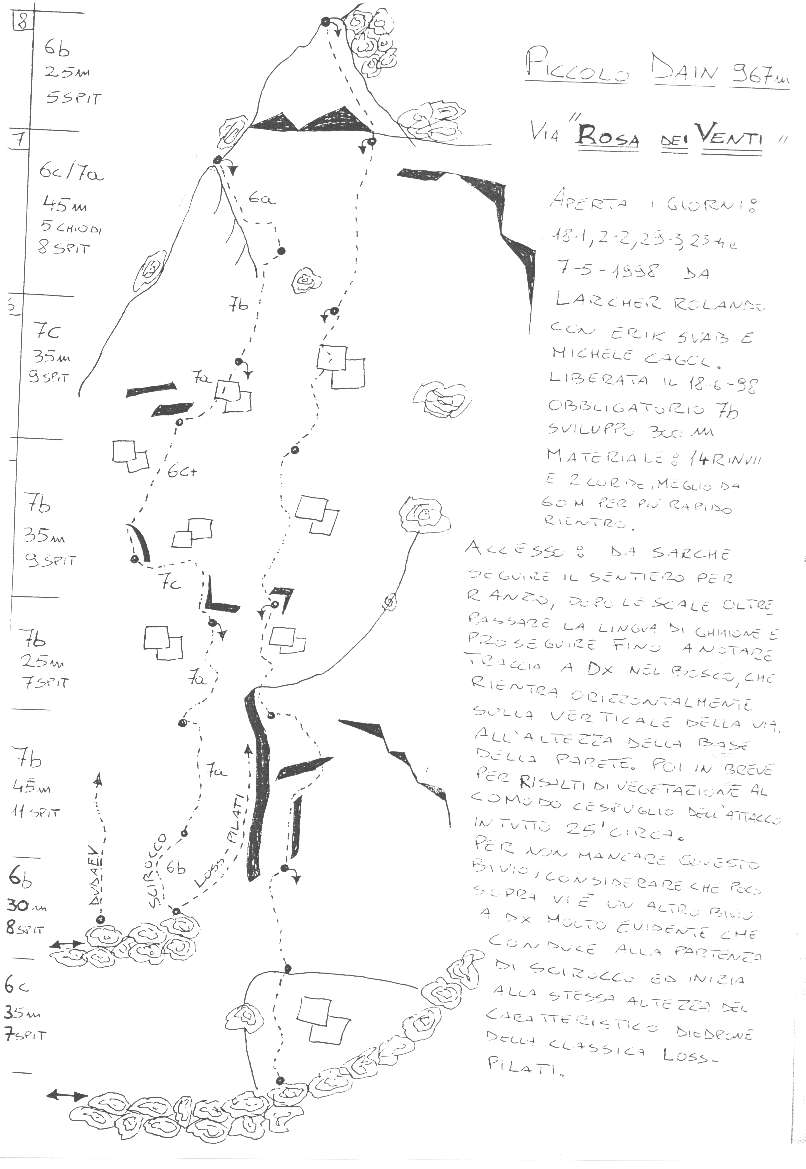 8
6b
25m
5 SPIT
7
6c/7a
45m
5 CHIODI
8 SPIT
7c
35m
9 SPIT
7b
35m
9 SPIT
7b
25m
7 SPIT
7b
45m
11 SPIT
6b
30m
8 SPIT
6c
35m
7 SPIT
6a
7b
7a
6c+
7c
7a
7a
6b
DUDAEV
SCIROCCO
LOSS PILATI
PICCOLO DAIN 967m
VIA "ROSA DEI VENTI"
APERTA I GIORNI:
18-1, 2-2, 29-3, 25-4 e
7-5-1998 DA
LARCHER ROLANDO
CON ERIK SVAB E
MICHELE CAGOL.
LIBERATA IL 18-6-98
OBBLIGATORIO 7b
SVILUPPO 300 m
MATERIALE: 14 RINVII
E 2 CORDE, MEGLIO DA
60 M PER PIÙ RAPIDO
RIENTRO.
ACCESSO: DA SARCHE
SEGUIRE IL SENTIERO PER
RANZO, DOPO LE SCALE OLTRE
PASSARE LA LINGUA DI GHIAIONE E
PROSEGUIRE FINO A NOTARE
TRACCIA A DX NEL BOSCO, CHE
RIENTRA ORIZZONTALMENTE
SULLA VERTICALE DELLA VIA,
ALL'ALTEZZA DELLA BASE
DELLA PARETE. POI IN BREVE
PER RISALTI DI VEGETAZIONE AL
COMODO CESPUGLIO DELL'ATTACCO
IN TUTTO 25' CIRCA.
PER NON MANCARE QUESTO
BIVIO, CONSIDERARE CHE POCO
SOPRA VI È UN ALTRO BIVIO
A DX MOLTO EVIDENTE CHE
CONDUCE ALLA PARTENZA
DI SCIROCCO ED INIZIA
ALLA STESSA ALTEZZA DEL
CARATTERISTICO DIEDRONE
DELLA CLASSICA LOSS-
PILATI.